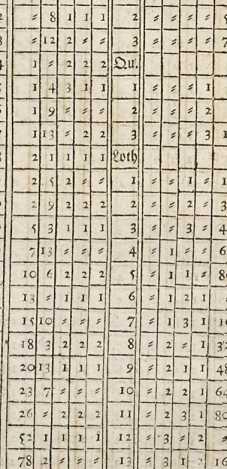 ⸗ 8 1 1 1 2 ⸗ ⸗ ⸗ ⸗
⸗ 12 2 ⸗ ⸗ 3 ⸗ ⸗ ⸗ ⸗
1 ⸗ 2 2 2 Qu.
1 4 3 1 1 1 ⸗ ⸗ ⸗ 1
1 9 ⸗ ⸗ ⸗ 2 ⸗ ⸗ ⸗ 2
1 13 ⸗ 2 2 3 ⸗ ⸗ ⸗ 3 1
2 1 1 1 1 Loth
2 5 2 ⸗ ⸗ 1 ⸗ ⸗ 1 ⸗ 1
2 9 2 2 2 2 ⸗ ⸗ 2 ⸗ 3
5 3 1 1 1 3 ⸗ ⸗ 3 ⸗ 4
7 13 ⸗ ⸗ ⸗ 4 ⸗ 1 ⸗ ⸗ 6
10 6 2 2 2 5 ⸗ 1 1 ⸗ 8
13 ⸗ 1 1 1 6 ⸗ 1 2 1
15 10 ⸗ ⸗ ⸗ 7 ⸗ 1 3 1
18 3 2 2 2 8 ⸗ 2 ⸗ 1 3
20 13 1 1 1 9 ⸗ 2 1 1 4
23 7 ⸗ ⸗ ⸗ 10 ⸗ 2 2 1 6
26 ⸗ 2 2 2 11 ⸗ 2 3 1 8
52 1 1 1 1 12 ⸗ 3 ⸗ 2 ⸗
78 2 ⸗ ⸗ ⸗ 13 ⸗ 3 1